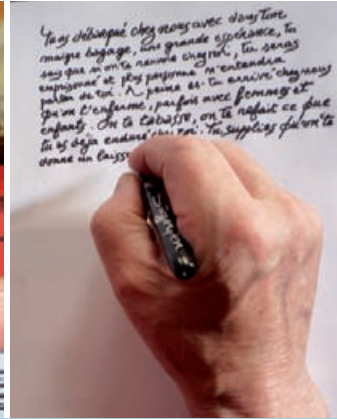 Tu as débarqué chez nous avec dans ton
maigre bagage, une grande espérance, tu
sais que si on te ramène chez toi, tu seras
emprisonné et plus personne n'entendra
parler de toi. A peine es-tu arrivé chez nous
qu'on t'enferme, parfois avec femmes et
enfants. On te tabasse, on te refait ce que
tu as déjà enduré chez toi. Tu supplies qu'on te
donne un laisse